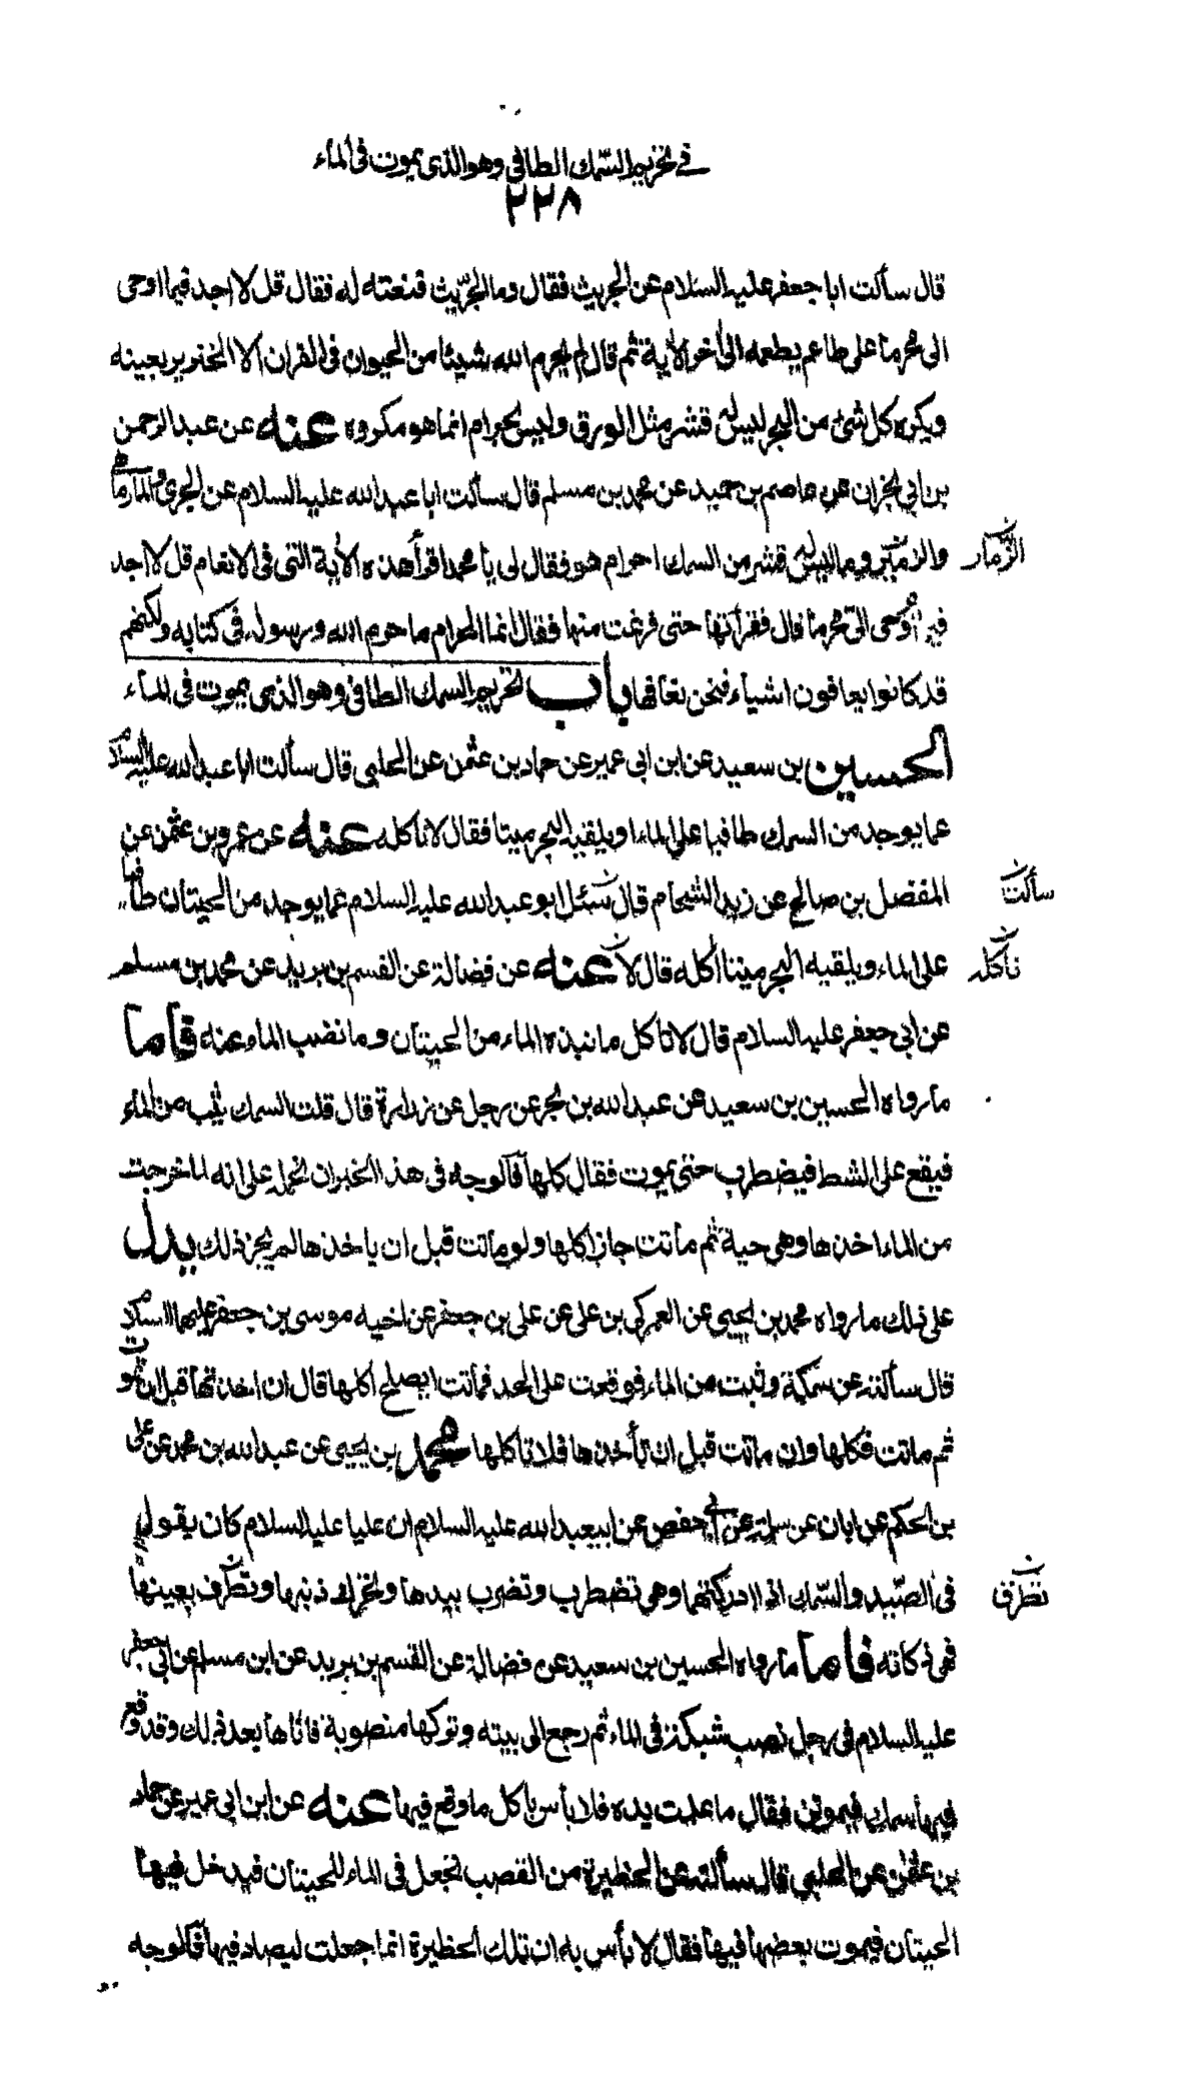 في تحريم السمك الطافى وهو الذى يموت فى المآء
٢٢٨
قال سألت ابا جعفر عليه السلام عن الجريث فقال وما الجرّيث فنعته له فقال قل لا اجد فيما اوحى
الى محرما على طاعم يطعمه الى أخر الأية ثم قال لم يحرم الله شيئا من الحيوان فى القران الا الخنزير بعينه
ويكره كل شئ من البحر ليس له قشر مثل الورق وليس بحرام انما هو مكروه عنه عن عبد الرحمن
بن ابى نجران عن عاصم بن حميد عن محمد بن مسلم قال سألت ابا عبد الله عليه السلام عن الجرى والمارماهى
والزمّير وما ليس له قشر من السمك احرام هو فقال لى يا محمد اقرأ هذه الأية التى فى الانعام قل لا اجد
الزمّار
فيما أوحى الىّ محرما قال فقرأتها حتى فرغت منها فقال انما الحرام ما حرم الله ورسوله فى كتابه ولكنهم
قد كانوا يعافون اشياء فنحن نعافها باب تحريم السمك الطافى وهو الذى يموت فى المآء
الحسين بن سعيد عن ابن ابى عمير عن حماد بن عثمن عن الحلبى قال سألت ابا عبد الله عليه السلام
عما يوجد من السمك طافيا على الماء او يلقيه البحر ميتا فقال لا تاكله عنه عن عمرو بن عثمن عن
المفضل بن صالح عن زيد الشحام قال سئل ابو عبد الله عليه السلام عما يوجد من الحيتان طافيا
سألت
على الماء ويلقيه البحر ميتا أكله قال لا عنه عن فضالة عن القسم بن بريد عن محمد بن مسلم
ناكله
عن ابى جعفر عليه السلام قال لا تاكل ما نبذه الماء من الحيتان وما نضب الماء عنه فاما
ما رواه الحسين بن سعيد عن عبد الله بن بحر عن رجل عن زرارة قال قلت السمك يثب من الماء
فيقع على الشط فيضطرب حتى يموت فقال كلها فالوجه فى هذا الخبر ان نحمله على انه اذا خرجت
من الماء اخذها وهى حية ثم ماتت جاز اكلها ولو ماتت قبل ان ياخذها لم يجز ذلك يدل
على ذلك ما رواه محمد بن يحيى عن العمركى بن على عن على بن جعفر عن اخيه موسى بن جعفر عليهما السلام
قال سألته عن سمكة وثبت من الماء فوقعت على الجد فماتت ايصلح أكلها قال ان اخذتها قبل ان تموت
ثم ماتت فكلها وان ماتت قبل ان تأخذها فلا تاكلها محمد بن يحيى عن عبد الله بن محمد عن على
بن الحكم عن ابان عن سلمة عن أبى حفص عن ابيعبد الله عليه السلام ان عليا عليه السلام كان يقول
فى الصّيد والسّمك اذا ادركتهما وهى تضطرب وتضرب بيدها وتحرك ذنبها وتطرف بعينها
تطرق
فهى ذكاته فاما ما رواه الحسين بن سعيد عن فضالة عن القسم بن بريد عن ابن مسلم عن ابى جعفر
عليه السلام فى رجل نصب شبكة فى الماء ثم رجع الى بيته وتركها منصوبة فاتاها بعد ذلك وقد وقع
فيها سمك فيموتن فقال ما عملت يده فلا بأس باكل ما وقع فيها عنه عن ابن ابى عمير عن حماد
بن عثمن عن الحلبى قال سألته عن الحظيرة من القصب تجعل فى الماء للحيتان فيدخل فيها
الحيتان فيموت بعضها فيها فقال لا بأس به ان تلك الحظيرة انما جعلت ليصاد فيها فالوجه